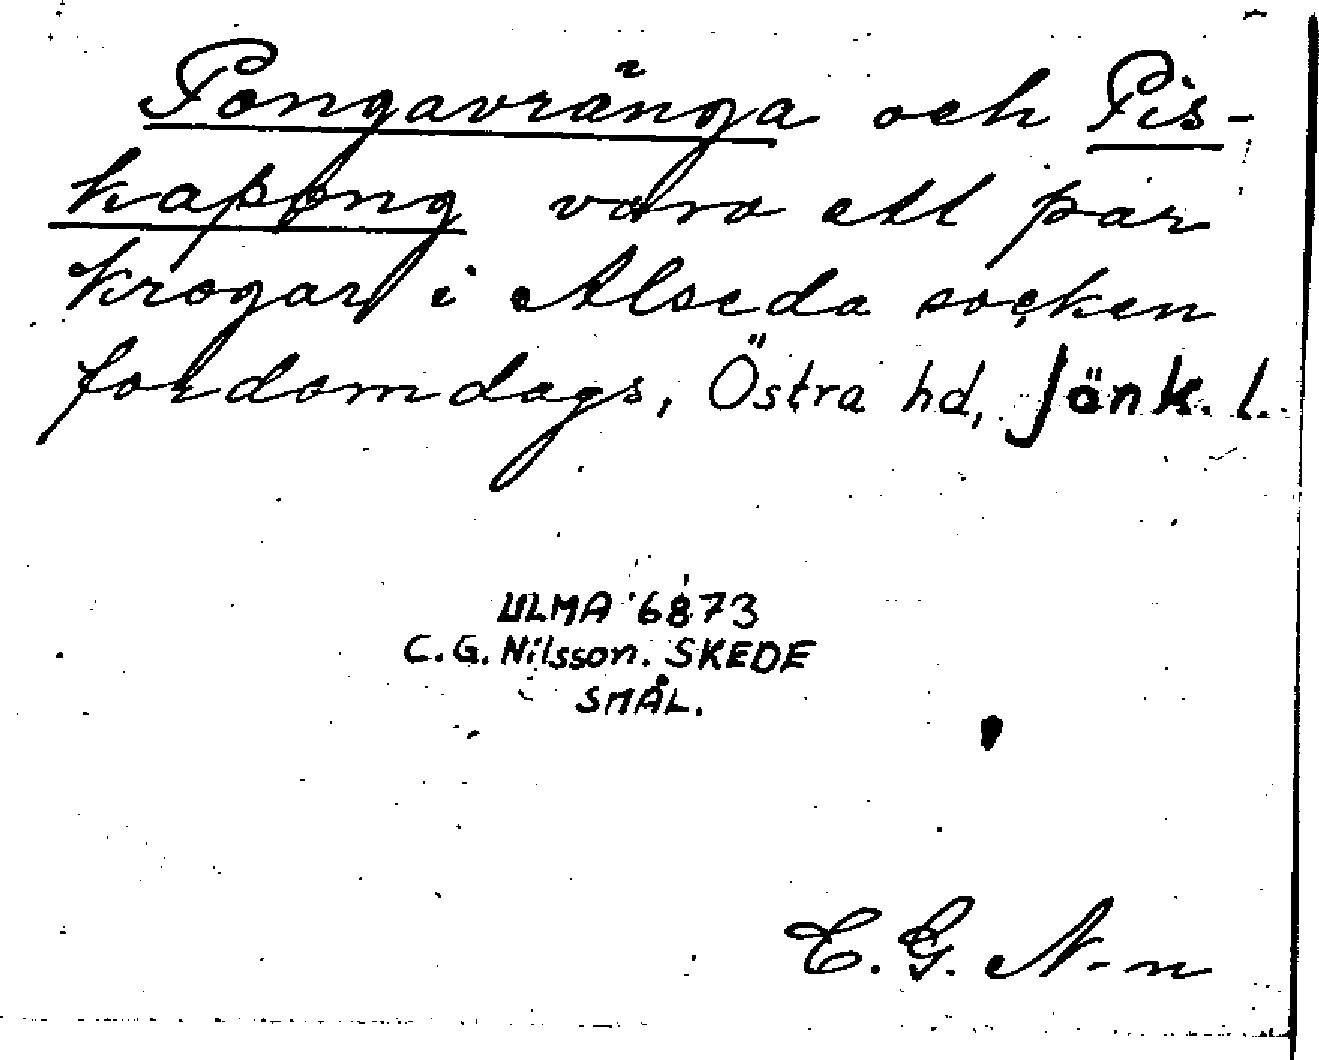 Pongavränga och Pis-
kapong voro ett par
krogar i Alseda socken
fordomdags, Östra hd, Jönk. l.
ULMA 6873
C.G. Nilsson. SKEDE
SMÅL.
C. G. N-n